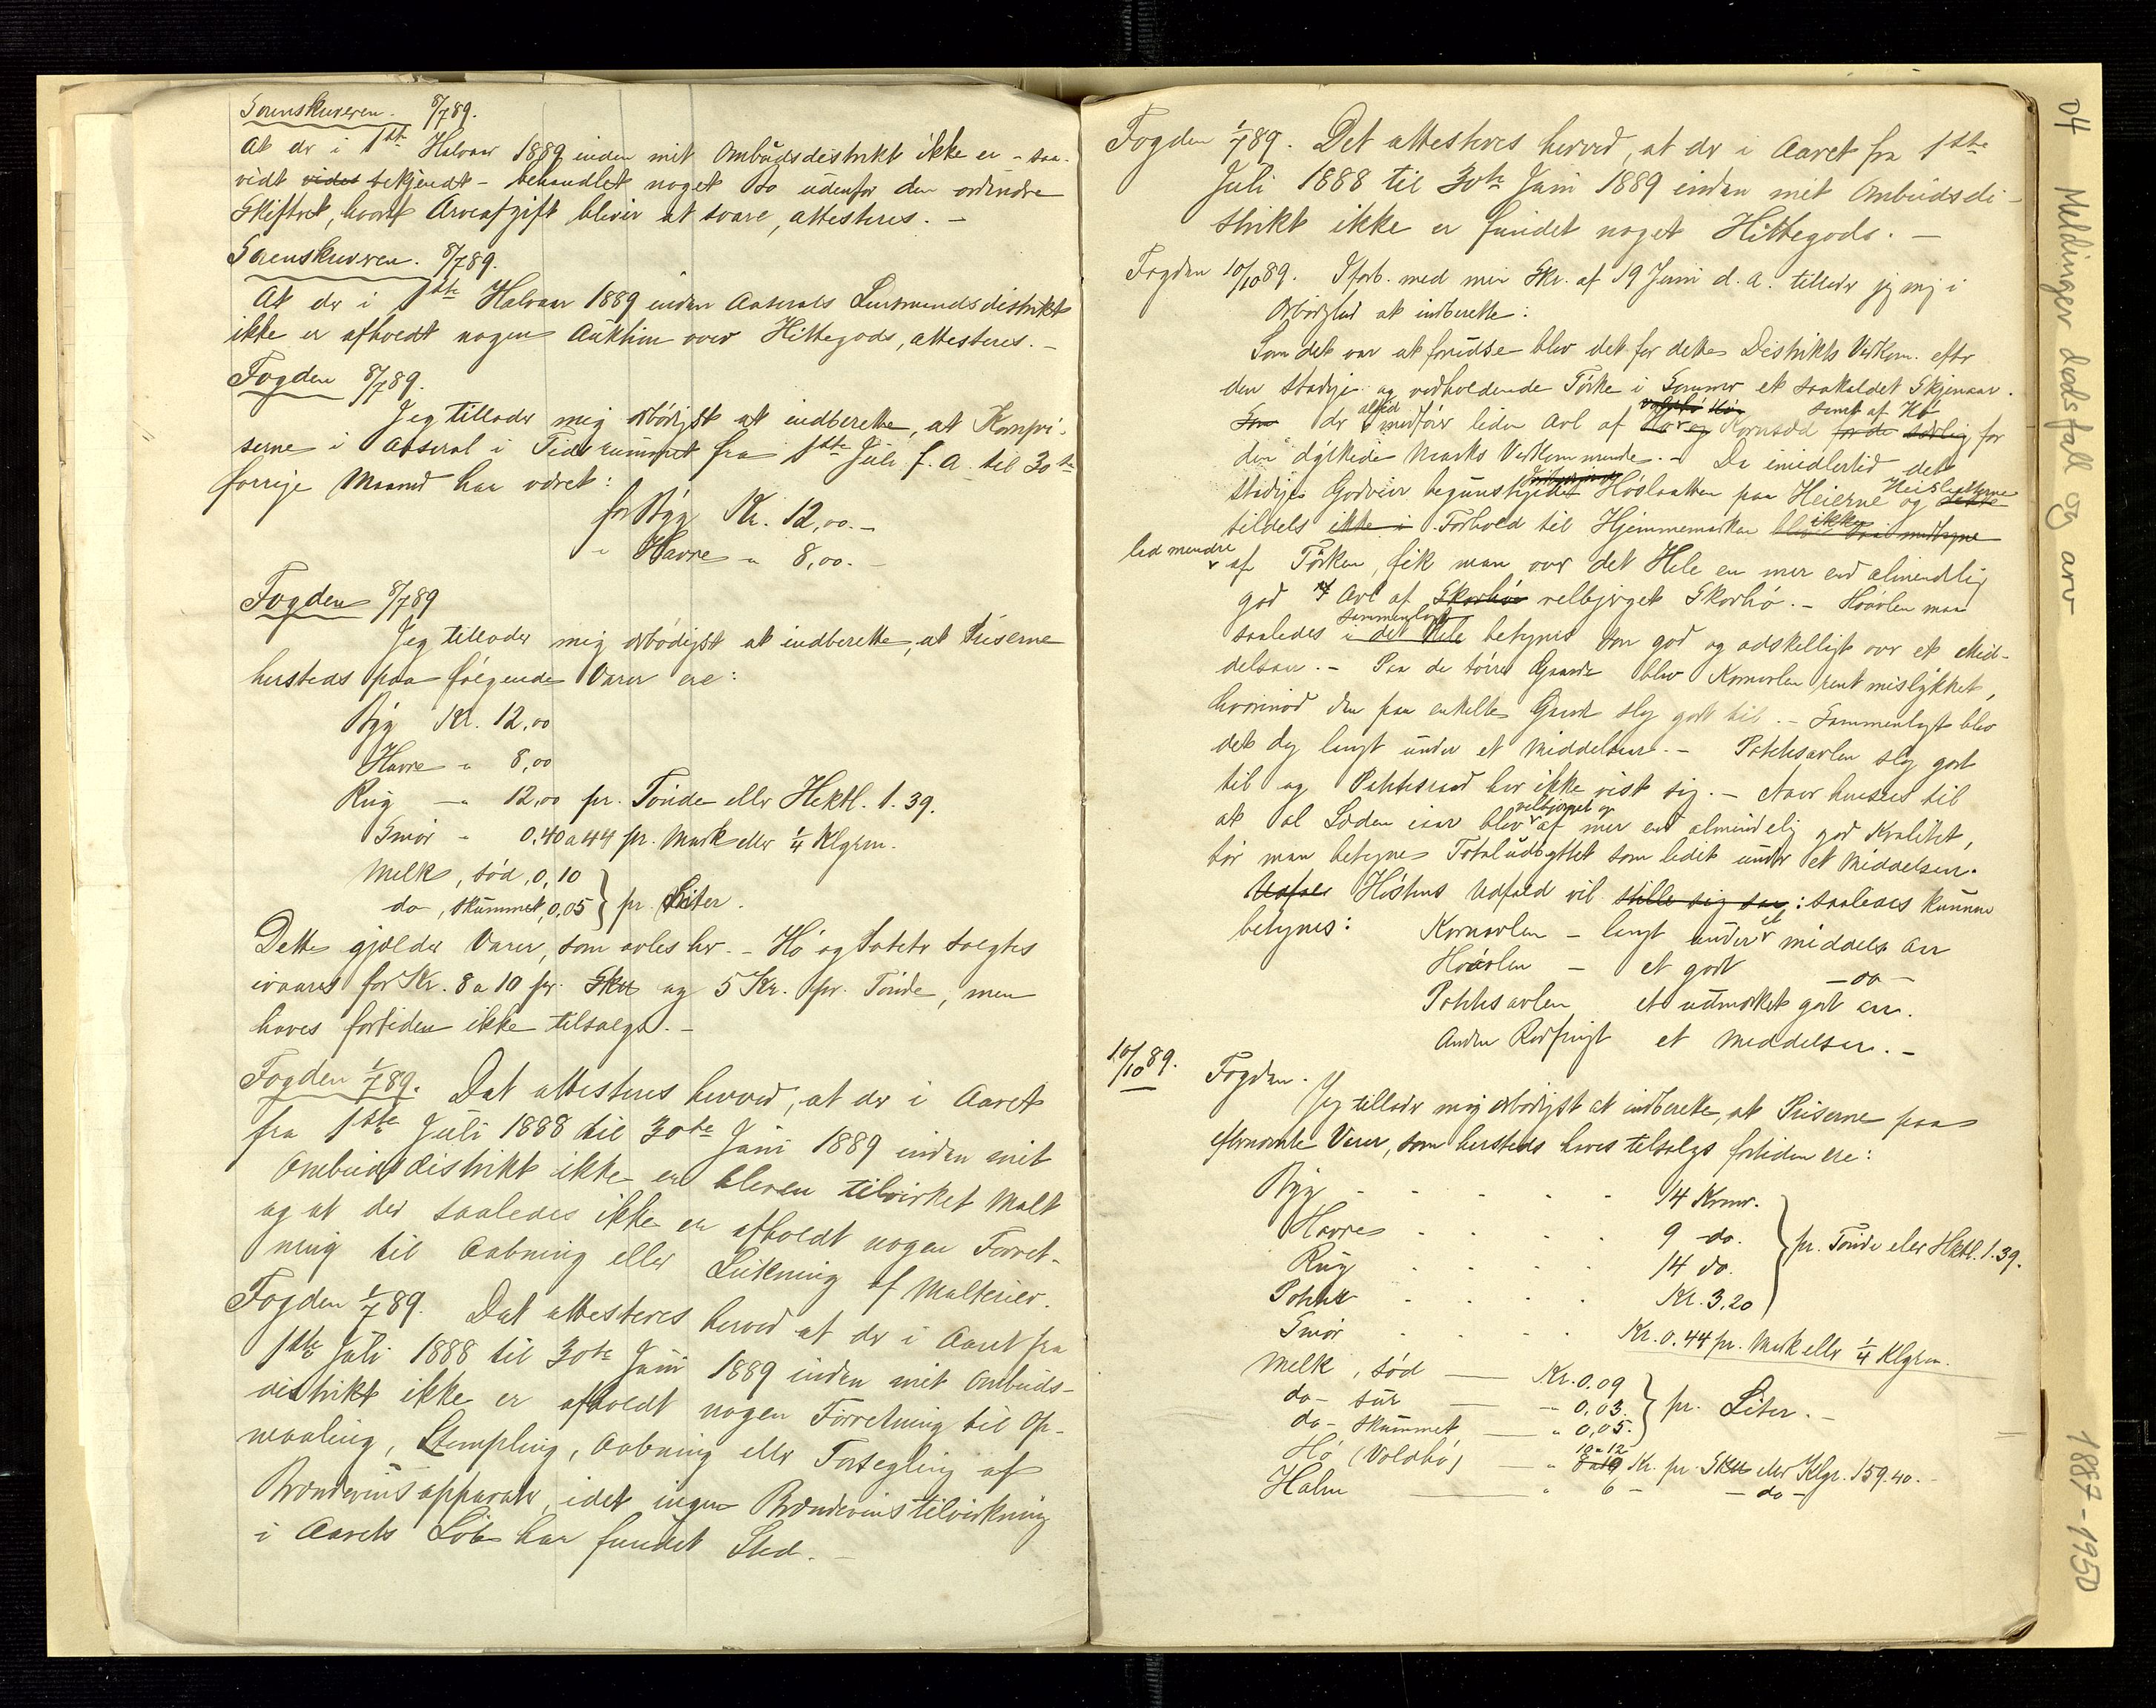 Sorenskriveren. 8/7 89.
At der i 1ste Halvaar 1889 inden mit Ombudsdistrikt ikke er - saa-
vidt vides bekjendt - behandlet noget Bo udenfor den ordinære
Skifteret, hvoraf Arveafgift bliver at svare, attesteres. -
Sorenskriveren. 8/7 89.
At der i 1ste Halvaar 1889 inden Aaserals Lensmandsdistrikt
ikke er afholdt nogen Auktion over Hittegods, attesteres. -
Fogden 8/7 89.
Jeg tillader mig ærbödigst at indberette, at Kornpri-
serne i Aaseral i Tidsrummet fra 1ste Juli f. A. til 30te
forrige Maaned har været:
for Byg Kr. 12,00. -
" Havre " 8,00. -
Fogden 8/7 89
Jeg tillader mig ærbödigst at indberette, at Priserne
hersteds paa fölgende Varer ere:
Byg Kr. 12,00
Havre " 8,00
Rug - " 12,00 pr. Tönde eller Hektl. 1.39.
Smör - 0,40 a 44 pr. Mark eller 1/4 Klgrm.
Melk, söd, 0,10
do-, skummet, 0,05 } pr. Liter.
Dette gjælder Varer, som avles her. - Hö og Poteter solgtes
ivaares for Kr. 8 a 10 pr. Sk℔ og 5 Kr. pr. Tönde, men
haves fortiden ikke tilsalgs. -
Fogden 1/7 89. Det attesteres herved, at der i Aaret
fra 1ste Juli 1888 til 30te Juni 1889 inden mit
Ombudsdistrikt ikke er bleven tilvirket Malt
og at der saaledes ikke er afholdt nogen Forret-
ning til Aabning eller Lukning af Malterier.
Fogden 1/7 89. Det attesteres herved at der i Aaret fra
1ste Juli 1888 til 30te Juni 1889 inden mit Ombuds-
distrikt ikke er afholdt nogen Forretning til Op-
maaling, Stempling, Aabning eller Forsegling af
Brændevinsapparater, idet ingen Brændevinstilvirkning
i Aarets Löb har fundet Sted. -
Fogden 1/7 89. Det attesteres herved, at der i Aaret fra 1ste
Juli 1888 til 30te Juni 1889 inden mit Ombudsdi-
strikt ikke er fundet noget Hittegods. -
Fogden 10/10 89. I forb. med min Skr. af 19 Juni d. A. tillader jeg mig i
Ærbödighed at indberette:
Som det var at forudse blev det for dette Distrikts Vedkom. efter
den stadige og vedholdende Törke i Sommer et saakaldet Skjenaar.
Som der altid medförer liden Avl af Kornsæd samt af Hö for
den dyrkede Marks Vedkommende. - Da imidlertid det
stadige Godveir begunstigede Höslaatten paa Heierne og Heislætterne
tildels ikke i Forhold til Hjemmemarken ikke
led mindre af Törken, fik man over det Hele en mer end almindelig
god Avl af Skovhöe velbjerget Skovhö. - Höavlen maa
saaledes sammenlagt i det Hele betegnes som god og adskilligt over et Mid-
delsaar. - Paa de törre Gaarde blev Kornavlen rent mislykket,
hvorimod den paa enkelte Gaarde slog godt til. - Sammenlagt blev
det dog langt under et Middelsaar. - Potetesavlen slog godt
til og Potetesraad har ikke vist sig. - Naar henses til
at al Sæden iaar blev velbjerget og af mer end almindelig god Kvalitet,
tör man betegne Totaludbyttet som lidet under et Middelsaar.
Udfal Höstens Udfald vil stille sig saa: saaledes kunne
betegnes: Kornavlen - langt under et middels Aar
Höavlen - et godt -do-
Potetesavlen et udmærket godt Aar.
Anden Rodfrugt et Middelsaar. -
10/10 89. Fogden.
Jeg tillader mig ærbödigst at indberette, at Priserne paa
efternævnte Varer, som hersteds haves tilsalgs fortiden ere:
Byg - - - - - 14 Kroner.
Havre - - - - 9 do.
Rug - - - - 14 do.
} pr. Tönde eller Hktl. 1.39.
Potetes - - - - Kr. 3,20
Smör - - - - Kr. 0.44 pr. Mark eller 1/4 Klgrm.
Melk, söd — Kr. 0.09
do- sur — " 0,03.
do- skummet — " 0,05.
} pr. Liter. -
Hö (Voldhö) — " 8 a 10 10 a 12 Kr. pr. Sk℔ eller Klgr. 159.40. -
Halm — " 6 - - do -
04 Meldinger dødsfall og arv
1887-1950